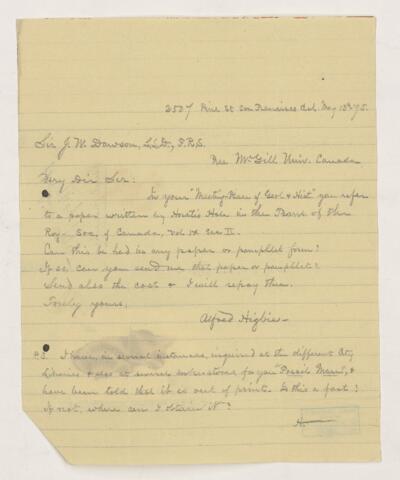 2507 Pine St San Francisco Cal. May 13th 95.
Sir J. W. Dawson, LL.D., F.R.S.
McGill Univ. Canada
Very Dir Sir:
In your "Meeting Place of Geol. & Hist" you refer
to a paper written by Horatio Hale in the Trans of the
Roy. Soc. of Canada, Vol. IX Sec II.
Can this be had in any paper or pamphlet form?
If so, can you send me that paper or pamphlet?
Send also the cost & I will repay the.
Truly yours,
Alfred Higbie
P.S. I have, in several instances, inquired at the different City
Libraries & also at several for your "Fossil Men", &
have been told that it is out of print. Is this a fact?
If not, where can I obtain it?
H